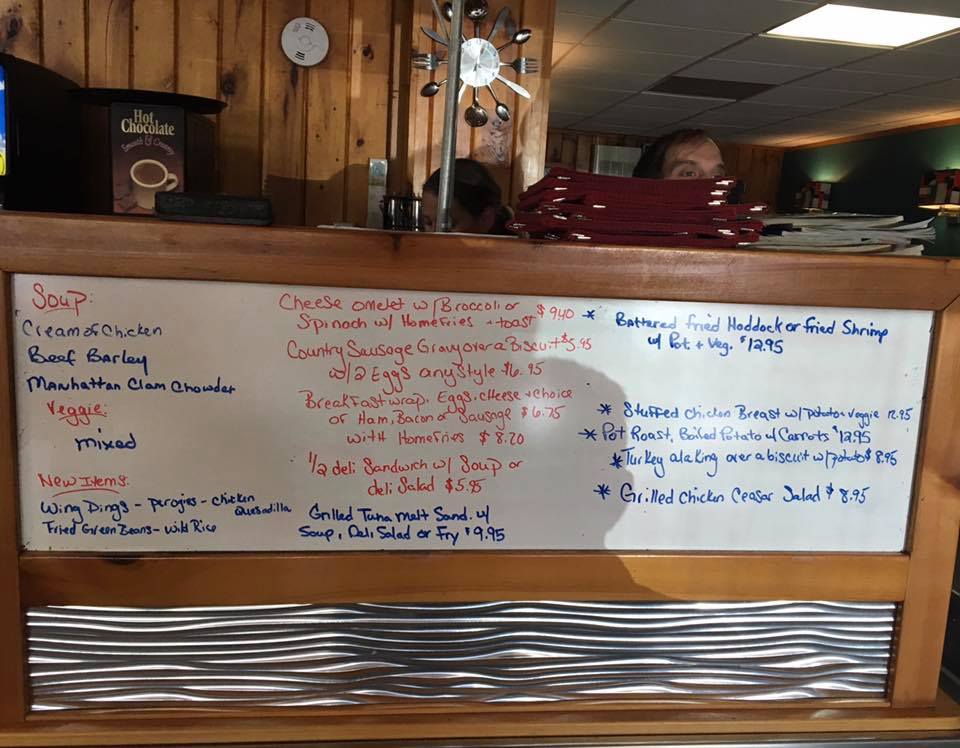 Hot
Chocolate
Smooth & Creamy
Soup:
Cream of Chicken
Beef Barley
Manhattan Clam Chowder
Veggie:
mixed
New Items:
Wing Dings - perogies - chicken
Quesadilla
Fried Green Beans - Wild Rice
Cheese omelet w/ Broccoli or
Spinach w/ Homefries + toast $9.40
Country Sausage Gravy over a Biscuit $5.95
w/ 2 Eggs any Style $6.95
Breakfast wrap, Eggs, cheese + choice
of Ham, Bacon or Sausage $6.75
with Homefries $8.20
1/2 deli Sandwich w/ Soup or
deli Salad $5.95
Grilled Tuna Melt Sand. w/
Soup, Deli Salad or Fry $9.95
* Battered fried Haddock or fried Shrimp
w/ Pot + Veg. $12.95
* Stuffed chicken Breast w/ potato + veggie 12.95
* Pot Roast, Boiled Potato w/ Carrots $12.95
* Turkey alaking over a biscuit w/ potato $8.95
* Grilled chicken Ceasar Salad $8.95